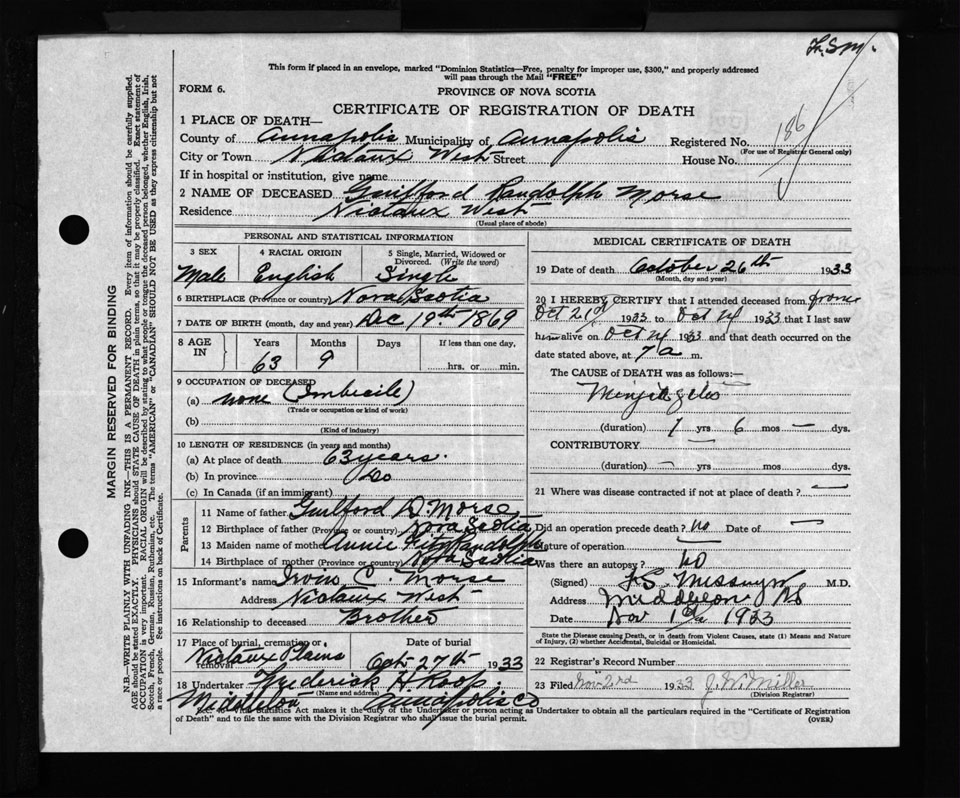 Fr. S.M.
This form if placed in an envelope, marked "Dominion Statistics—Free, penalty for improper use, $300," and properly addressed
will pass through the Mail "FREE"
FORM 6.
PROVINCE OF NOVA SCOTIA
CERTIFICATE OF REGISTRATION OF DEATH
1 PLACE OF DEATH—
County of Annapolis Municipality of Annapolis Registered No. 186
(For use of Registrar General only)
City or Town Nictaux West Street House No.
If in hospital or institution, give name
2 NAME OF DECEASED Guilford Randolph Morse
Residence Nictaux West
(Usual place of abode)
PERSONAL AND STATISTICAL INFORMATION
3 SEX 4 RACIAL ORIGIN 5 Single, Married, Widowed or
Divorced. (Write the word)
Male English Single
6 BIRTHPLACE (Province or country) Nova Scotia
7 DATE OF BIRTH (month, day and year) Dec 19th 1869
8 AGE IN Years Months Days If less than one day,
63 9 hrs. or min.
9 OCCUPATION OF DECEASED
(a) none (Imbecile)
(Trade or occupation or kind of work)
(b)
(Kind of industry)
10 LENGTH OF RESIDENCE (in years and months)
(a) At place of death 63 years.
(b) In province Do
(c) In Canada (if an immigrant)
Parents
11 Name of father Guilford D. Morse
12 Birthplace of father (Province or country) Nova Scotia
13 Maiden name of mother Annie Fitz Randolph
14 Birthplace of mother (Province or country) Nova Scotia
15 Informant's name Irvin C. Morse
Address Nictaux West
16 Relationship to deceased Brother
17 Place of burial, cremation or removal Date of burial
Nictaux Plains Oct 27th 1933
18 Undertaker Frederick H. Roop.
(Name and address)
Middleton Annapolis Co
MEDICAL CERTIFICATE OF DEATH
19 Date of death October 26th 1933
(Month, day and year)
20 I HEREBY CERTIFY that I attended deceased from
Oct 21st 1933 to Oct 24 1933 that I last saw
him alive on Oct 24 1933 and that death occurred on the
date stated above, at 7 a m.
The CAUSE of DEATH was as follows:—
(duration) 1 yrs 6 mos — dys.
CONTRIBUTORY
(duration) — yrs. mos. dys.
21 Where was disease contracted if not at place of death? —
Did an operation precede death? no Date of —
Nature of operation —
Was there an autopsy? no
(Signed) M.D.
Address Middleton NS
Date Nov 1st 1933
State the Disease causing Death, or in death from Violent Causes, state (1) Means and Nature
of Injury, (2) whether Accidental, Suicidal or Homicidal.
22 Registrar's Record Number
23 Filed Nov 2nd 1933 J. W. Miller
(Division Registrar)
Sec. Vital Statistics Act makes it the duty of the Undertaker or person acting as Undertaker to obtain all the particulars required in the "Certificate of Registration
of Death" and to file the same with the Division Registrar who shall issue the burial permit. (OVER)
MARGIN RESERVED FOR BINDING
N.B.—WRITE PLAINLY WITH UNFADING INK—THIS IS A PERMANENT RECORD. Every item of information should be carefully supplied.
AGE should be stated EXACTLY. PHYSICIANS should STATE CAUSE OF DEATH in plain terms, so that it may be properly classified. Exact statement of
OCCUPATION is very important. RACIAL ORIGIN will be described by stating to what people or tongue the deceased person belonged, whether English, Irish,
Scotch, French, German, Russian, Ruthenian, etc. The terms "AMERICAN" or "CANADIAN" SHOULD NOT BE USED as they express citizenship but not
a race or people. See instructions on back of Certificate.